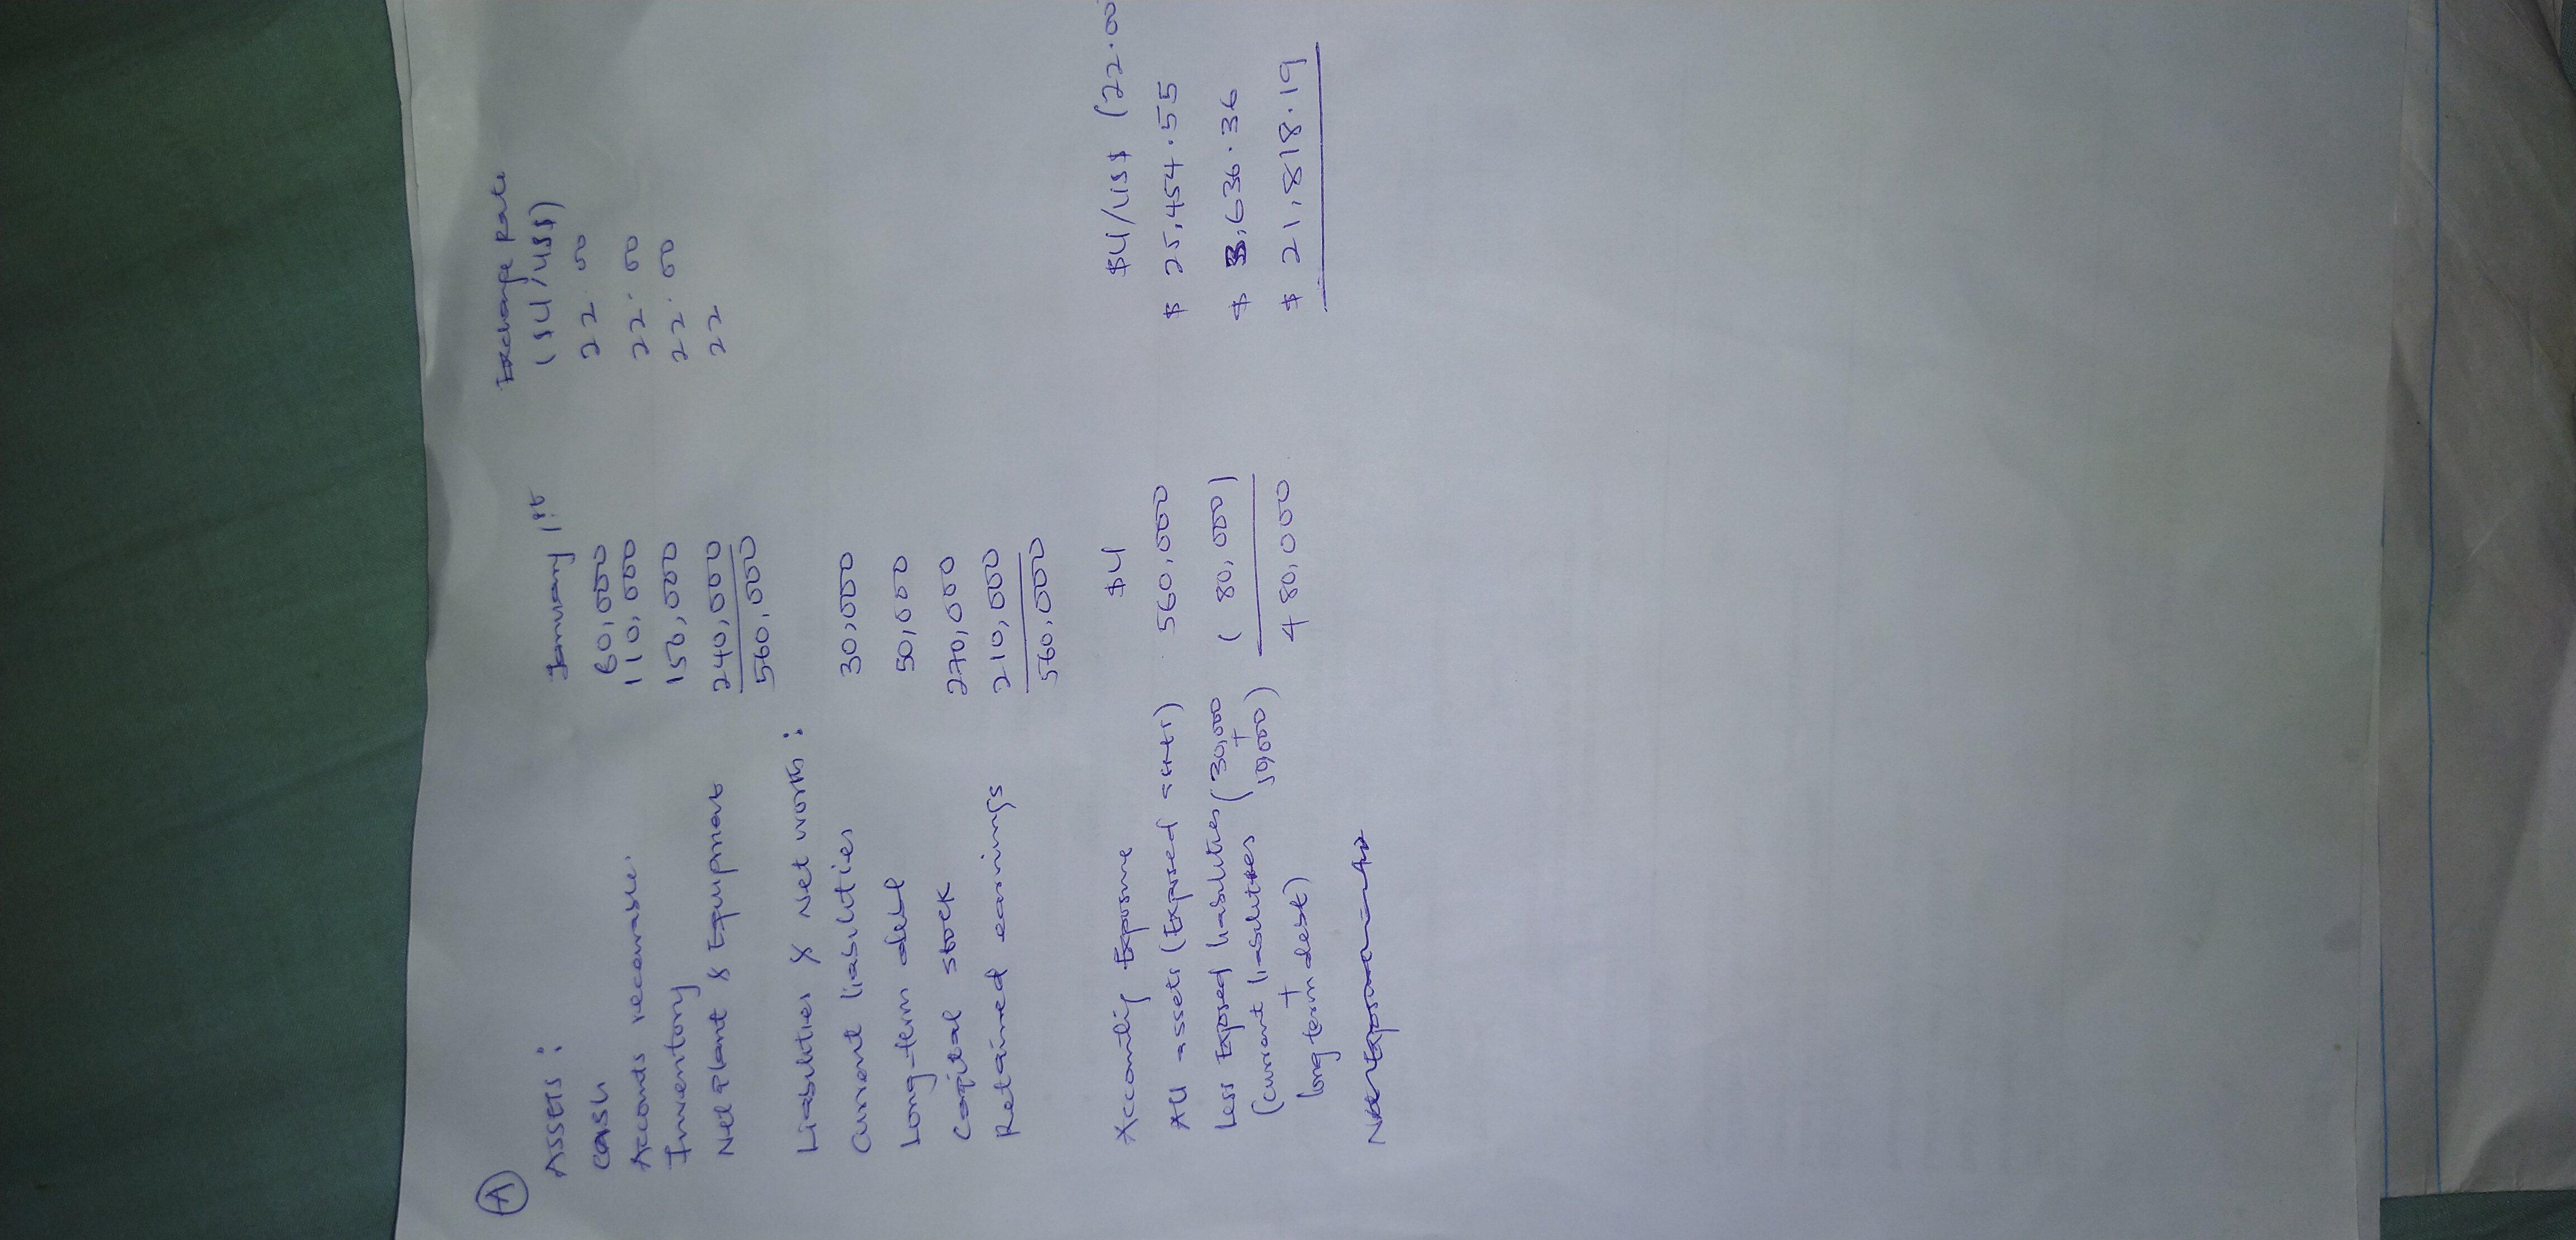 A
Exchange Rate
ASSETS: January 1st ($U/US$)
Cash 60,000 22.00
Accounts receivable. 110,000 22.00
Inventory 150,000 22.00
Net Plant & Equipment 240,000 22
560,000
Liabilities & Net worth:
Current liabilities 30,000
Long-term debt 50,000
Capital stock 270,000
Retained earnings 210,000
560,000
Accounting Exposure $U $U/US$ (22.00
All assets (Exposed assets) 560,000 $ 25,454.55
Less Exposed liabilities (30,000 (80,000) $ 3,636.36
(current liabilities + 50,000)
+ 480,000 $ 21,818.19
long term debt)